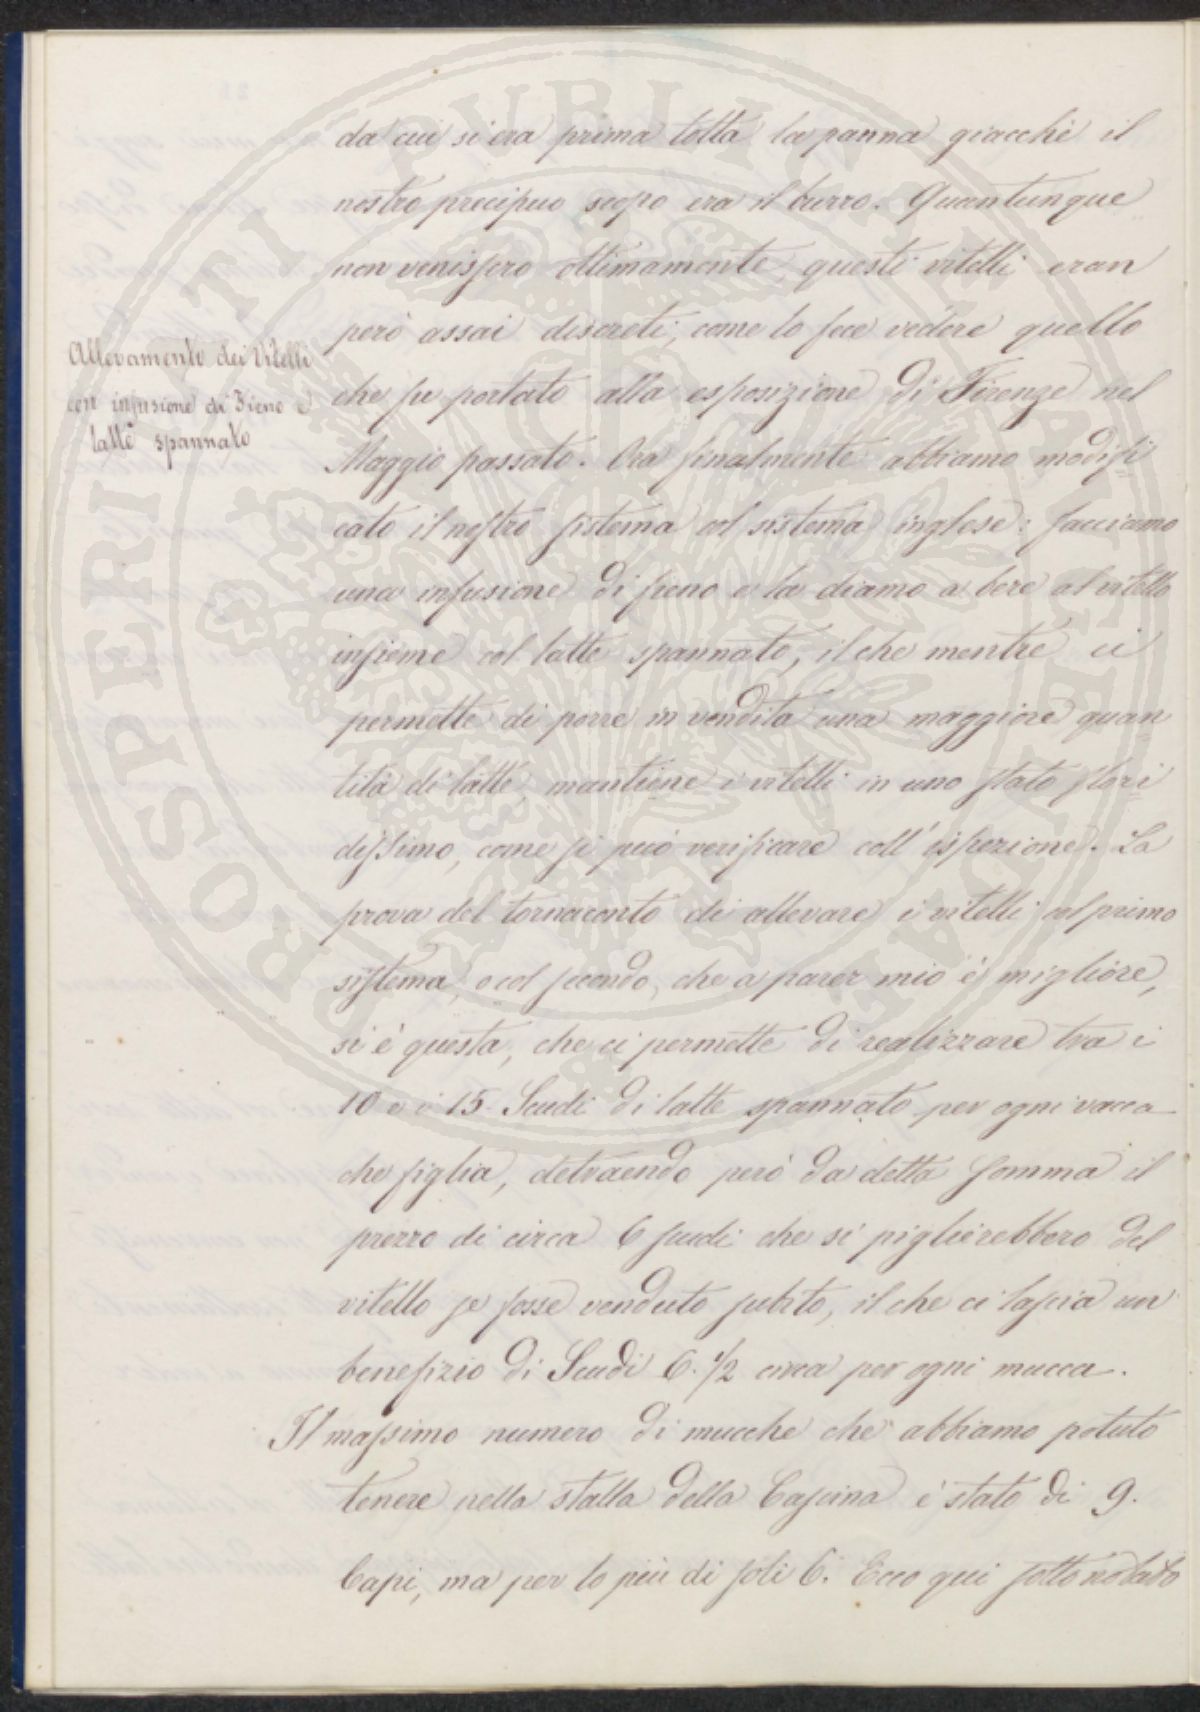 da cui si era prima tolta la panna giacchè il
nostro precipuo scopo era il burro. Quantunque
non venissero ottimamente, questi vitelli eran
però assai discreti, come lo fece vedere quello
che fu portato alla esposizione di Firenze nel
Maggio passato. Ora finalmente abbiamo modifi
cato il nostro sistema col sistema inglese: facciamo
una infusione di fieno e la diamo a bere al vitello
insieme col latte spannato, il che mentre ci
permette di porre in vendita una maggiore quan
tità di latte, mantiene i vitelli in uno stato flori
dissimo, come si può verificare coll' ispezione. La
prova del tornaconto di allevare i vitelli col primo
sistema, o col secondo, che a parer mio è migliore,
si è questa, che ci permette di realizzare tra i
10 e i 15 Scudi di latte spannato per ogni vacca
che figlia, detraendo però da detta somma il
prezzo di circa 6 scudi che si piglierebbero del
vitello se fosse venduto subito, il che ci lascia un
benefizio di Scudi 6. 1/2 circa per ogni mucca.
Il massimo numero di mucche che abbiamo potuto
tenere nella stalla della Cascina è stato di 9.
Capi, ma per lo più di soli 6. Ecco qui sotto notato
Allevamento dei Vitelli
con infusione di Fieno e
latte spannato
PROSPERITATI PVBLICAE AVGENDAE